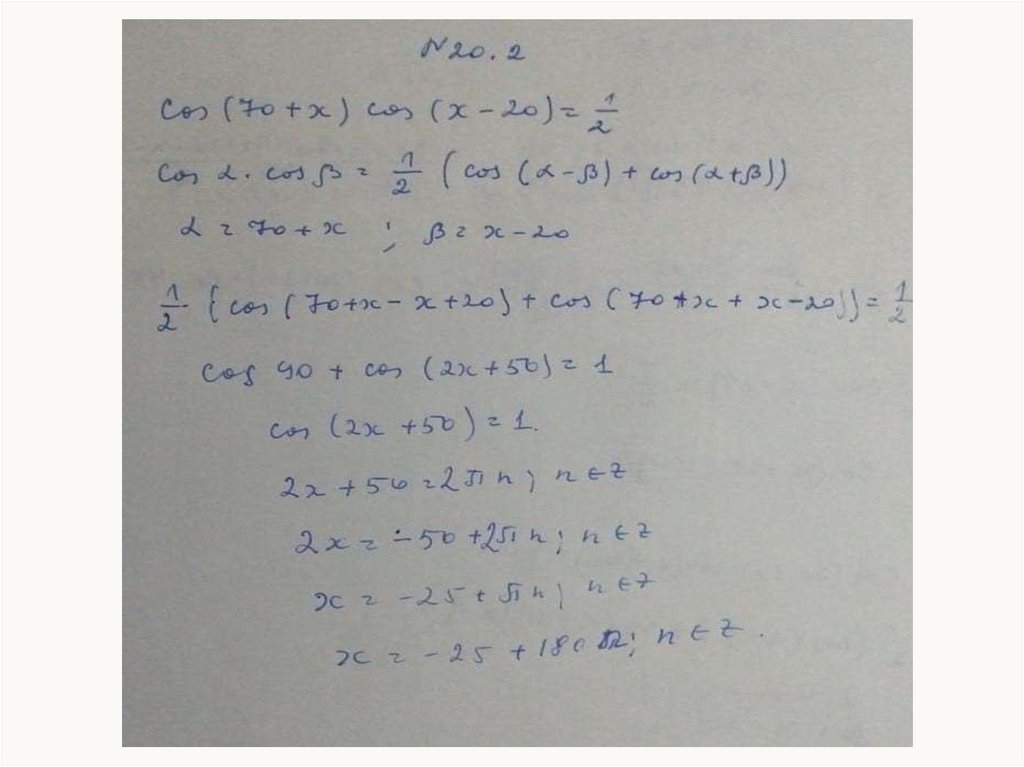 N20.2
cos (70 + x) cos (x - 20) = 1/2
cos α · cos β = 1/2 (cos (α - β) + cos (α + β))
α = 70 + x ; β = x - 20
1/2 (cos (70 + x - x + 20) + cos (70 + x + x - 20)) = 1/2
cos 90 + cos (2x + 50) = 1
cos (2x + 50) = 1.
2x + 50 = 2πn; n ∈ z
2x = -50 + 2πn; n ∈ z
x = -25 + πn; n ∈ z
x = -25 + 180n; n ∈ z.